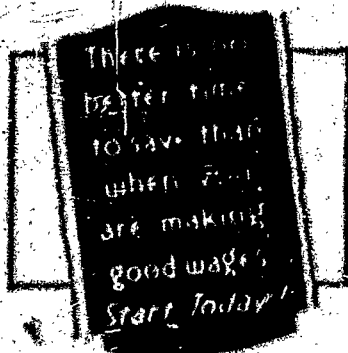 There is no
better time
to save than
when you
are making
good wages
Start Today!